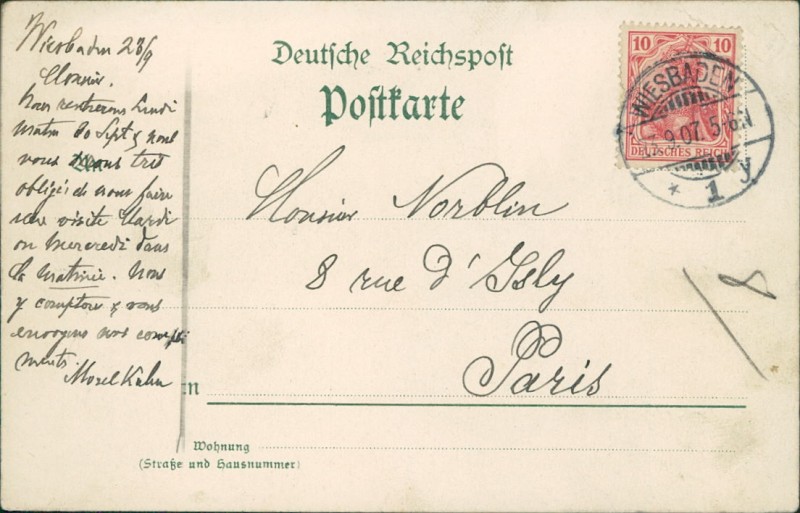 Wiesbaden 23/9
Monsieur.
Nous rentrerons Lundi
matin 30 Sept & nous
vous serons très
obligés de nous faire
une visite Mardi
ou Mercredi dans
la matinée. Nous
y comptons & vous
envoyons nos compli
ments.
Deutsche Reichspost
Postkarte
10 10
DEUTSCHES REICH
WIESBADEN
.9.07. 5-6N
* 1 y
Monsieur Norblin
8 rue d'Isly
Paris
8
n
Wohnung
(Straße und Hausnummer)